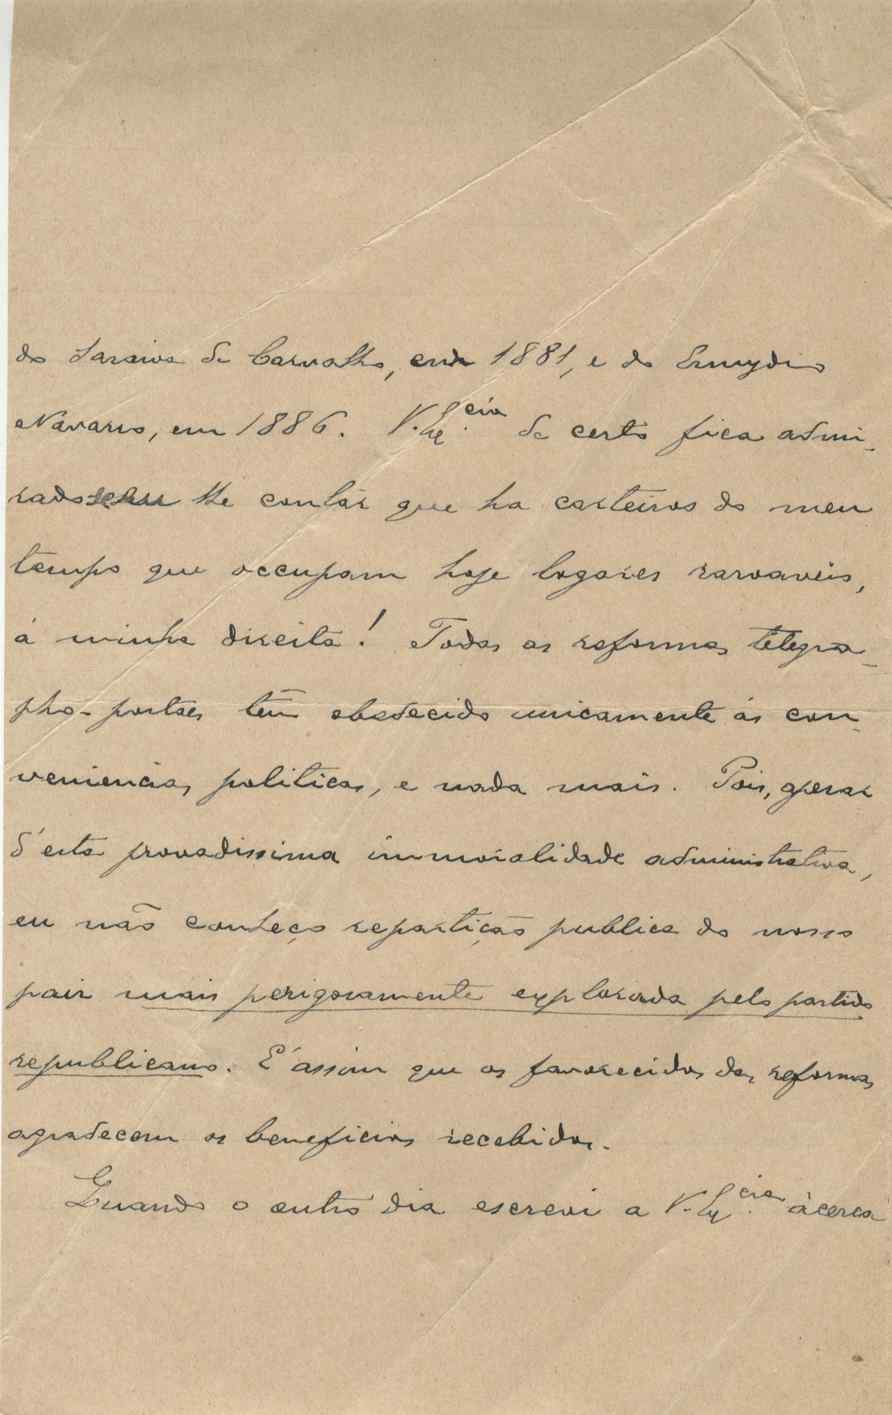 do Saraiva de Carvalho, em 1881, e do Emygdio
Navarro, em 1886. V. Ex.cia de certo fica admi-
rado se eu lhe contar que ha carteiros do meu
tempo que occupam hoje logares rasoaveis,
á minha direita! Todas as reformas telegra-
pho-postaes têm obedecido unicamente ás con-
veniencias politicas, e nada mais. Pois, apesar
d'esta provadissima immoralidade administrativa,
eu não conheço repartição publica do nosso
paiz mais perigosamente explorada pelo partido
republicano. E' assim que os favorecidos das reformas
agradecem os beneficios recebidos.
Quando o outro dia escrevi a V. Ex.cia ácerca